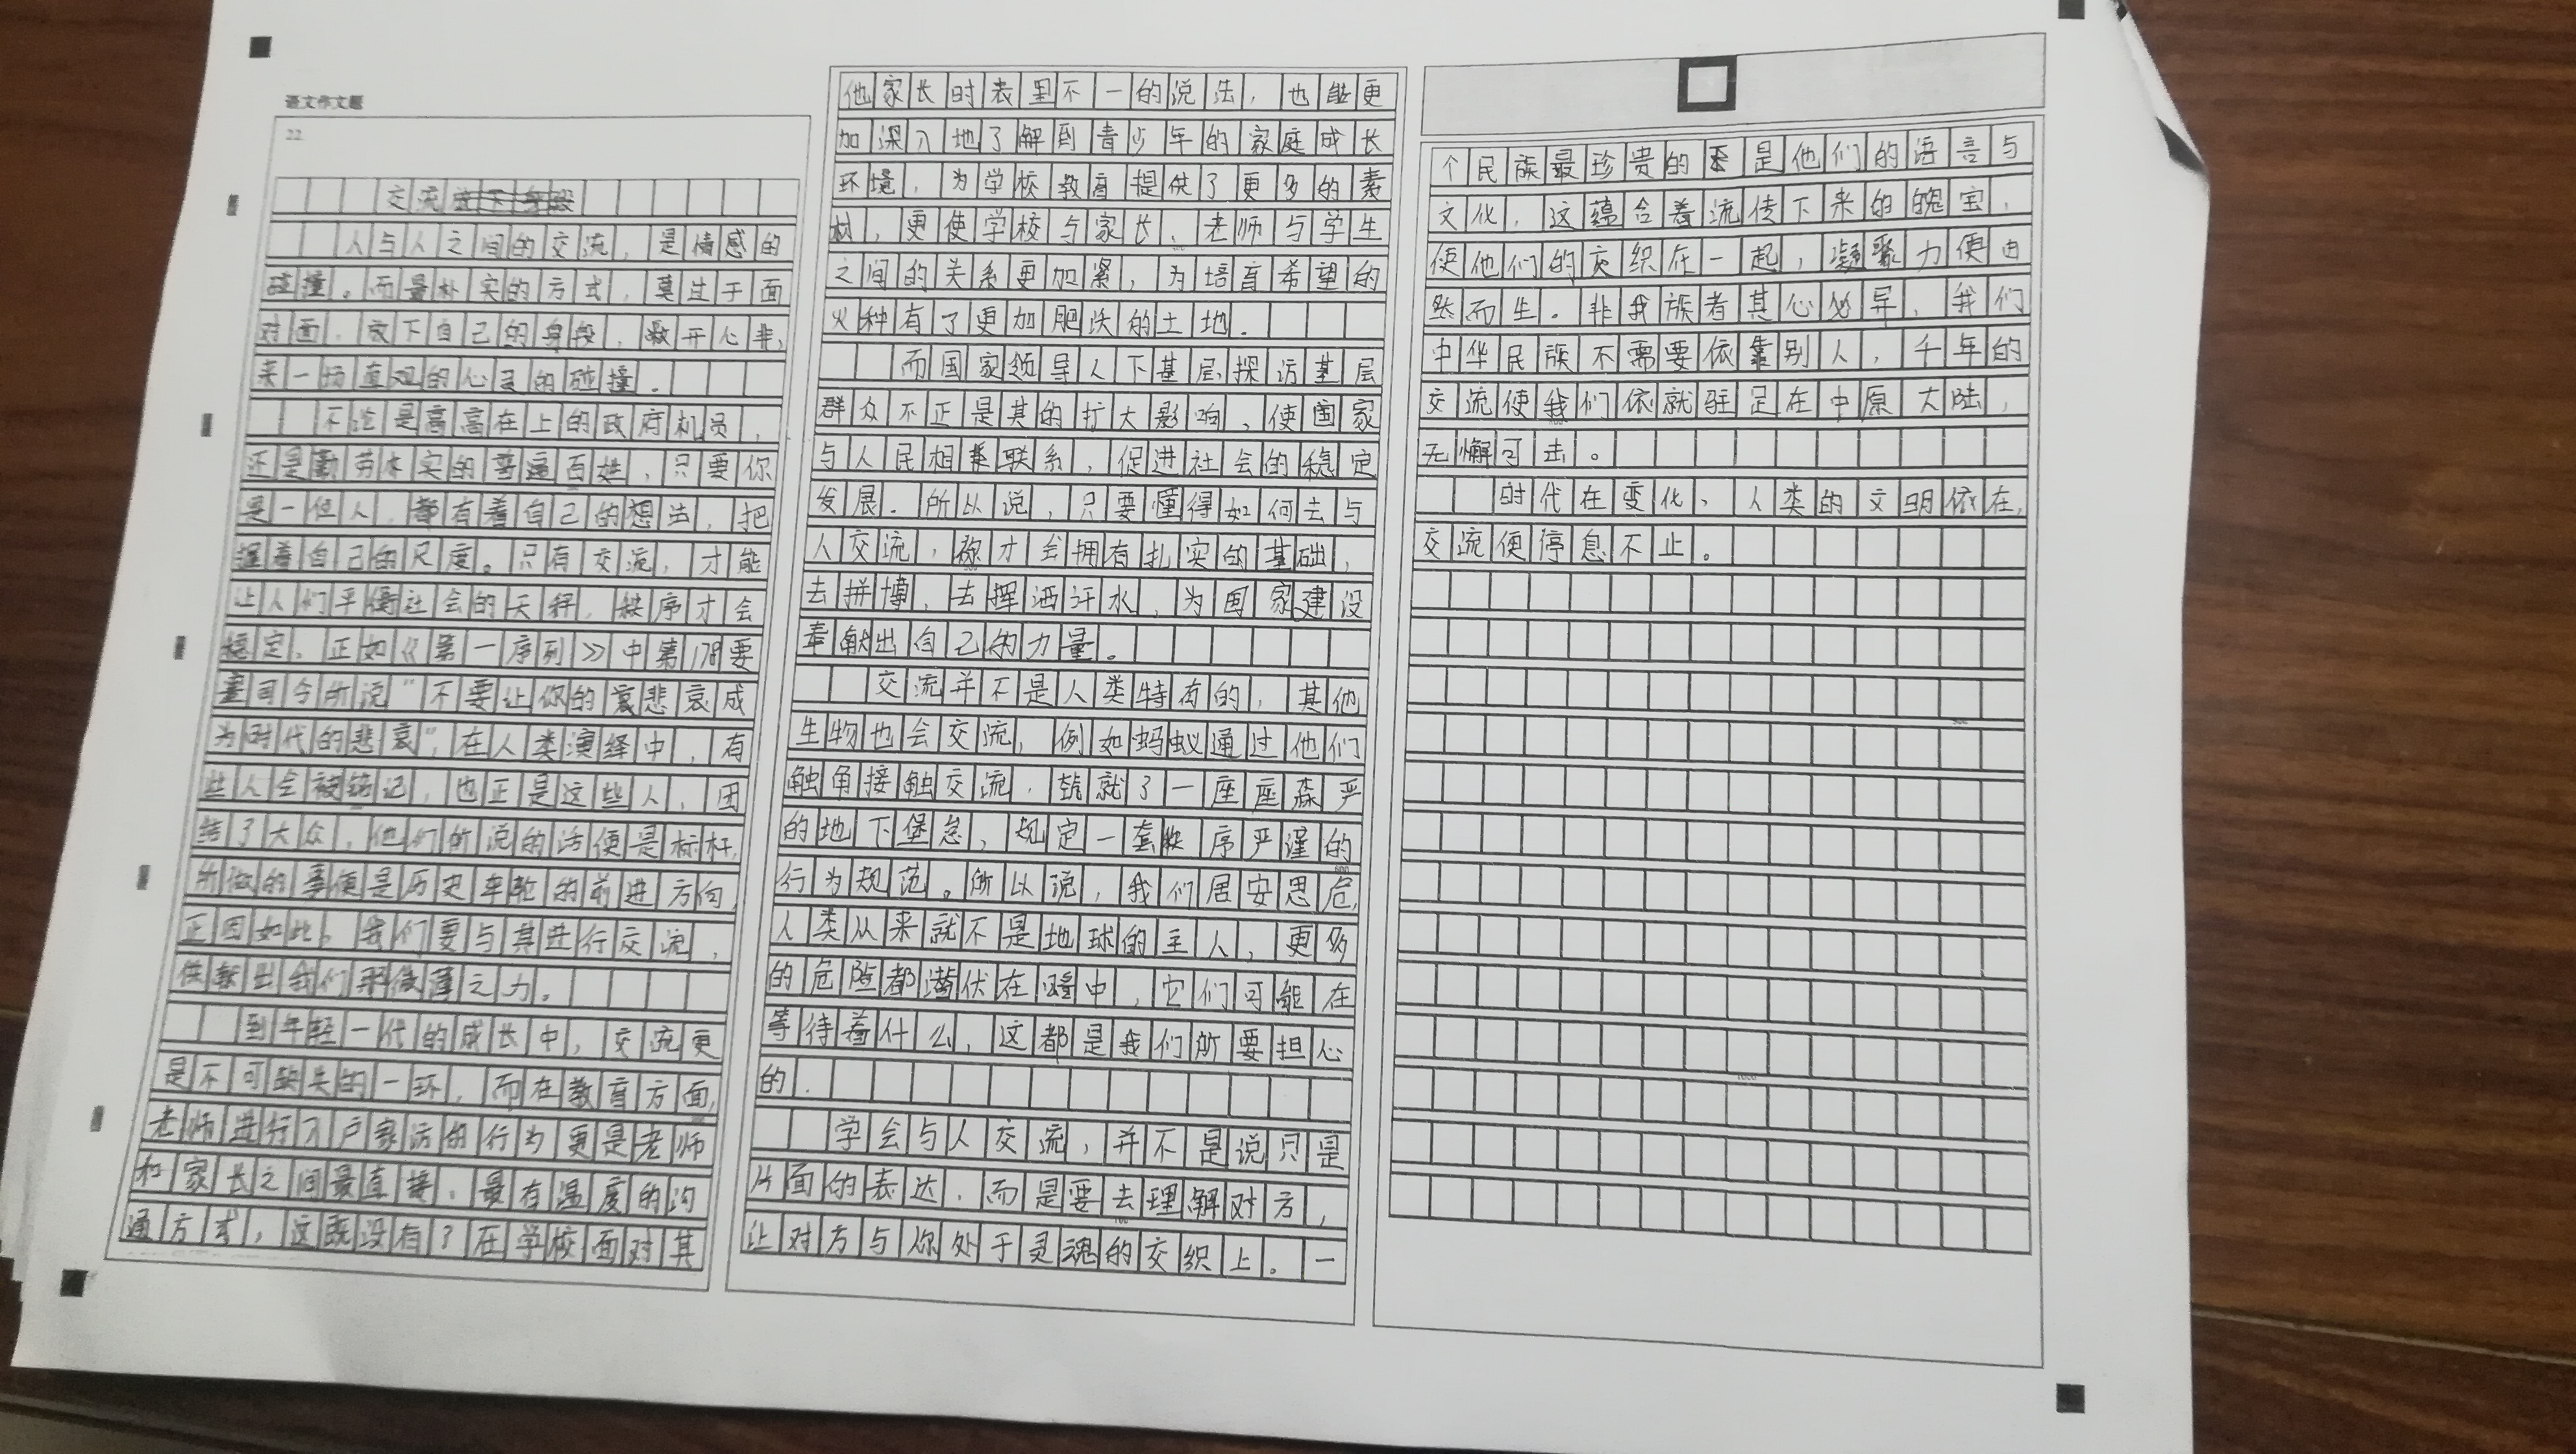 语文作文题
22.
交流
人与人之间的交流，是情感的
碰撞。而最朴实的方式，莫过于面
对面，放下自己的身段，敞开心扉，
来一场直观的心灵的碰撞。
不论是高高在上的政府机员，
还是勤劳朴实的普遍百姓，只要你
是一位人，都有着自己的想法，把
握着自己的尺度。只有交流，才能
让人们平衡社会的天秤，秩序才会
稳定。正如《第一序列》中第178要
塞司令所说“不要让你的悲哀成
为时代的悲哀”，在人类演绎中，有
些人会被铭记，也正是这些人，团
结了大众，他们所说的话便是标杆，
所做的事便是历史车轮的前进方向，
正因如此，我们要与其进行交流，
供献出我们那微薄之力。
到年轻一代的成长中，交流更
是不可缺失的一环，而在教育方面，
老师进行入户家访的行为更是老师
和家长之间最直接、最有温度的沟
通方式，这既没有了在学校面对其
他家长时表里不一的说法，也能更
加深入地了解到青少年的家庭成长
环境，为学校教育提供了更多的素
材，更使学校与家长、老师与学生
之间的关系更加紧，为培育希望的
火种有了更加肥沃的土地。
而国家领导人下基层探访基层
群众不正是其的扩大影响，使国家
与人民相联系，促进社会的稳定
发展。所以说，只要懂得如何去与
人交流，你才会拥有扎实的基础，
去拼博，去挥洒汗水，为国家建设
奉献出自己的力量。
交流并不是人类特有的，其他
生物也会交流，例如蚂蚁通过他们
触角接触交流，筑就了一座座森严
的地下堡垒，规定一套秩序严谨的
行为规范。所以说，我们居安思危，
人类从来就不是地球的主人，更多
的危险都潜伏在暗中，它们可能在
等待着什么，这都是我们所要担心
的。
学会与人交流，并不是说只是
片面的表达，而是要去理解对方，
让对方与你处于灵魂的交织上。一
个民族最珍贵的是他们的语言与
文化，这蕴含着流传下来的魄宝，
使他们的交织在一起，凝聚力便由
然而生。非我族者其心必异，我们
中华民族不需要依靠别人，千年的
交流使我们依就驻足在中原大陆，
无懈可击。
时代在变化，人类的文明依在，
交流便停息不止。